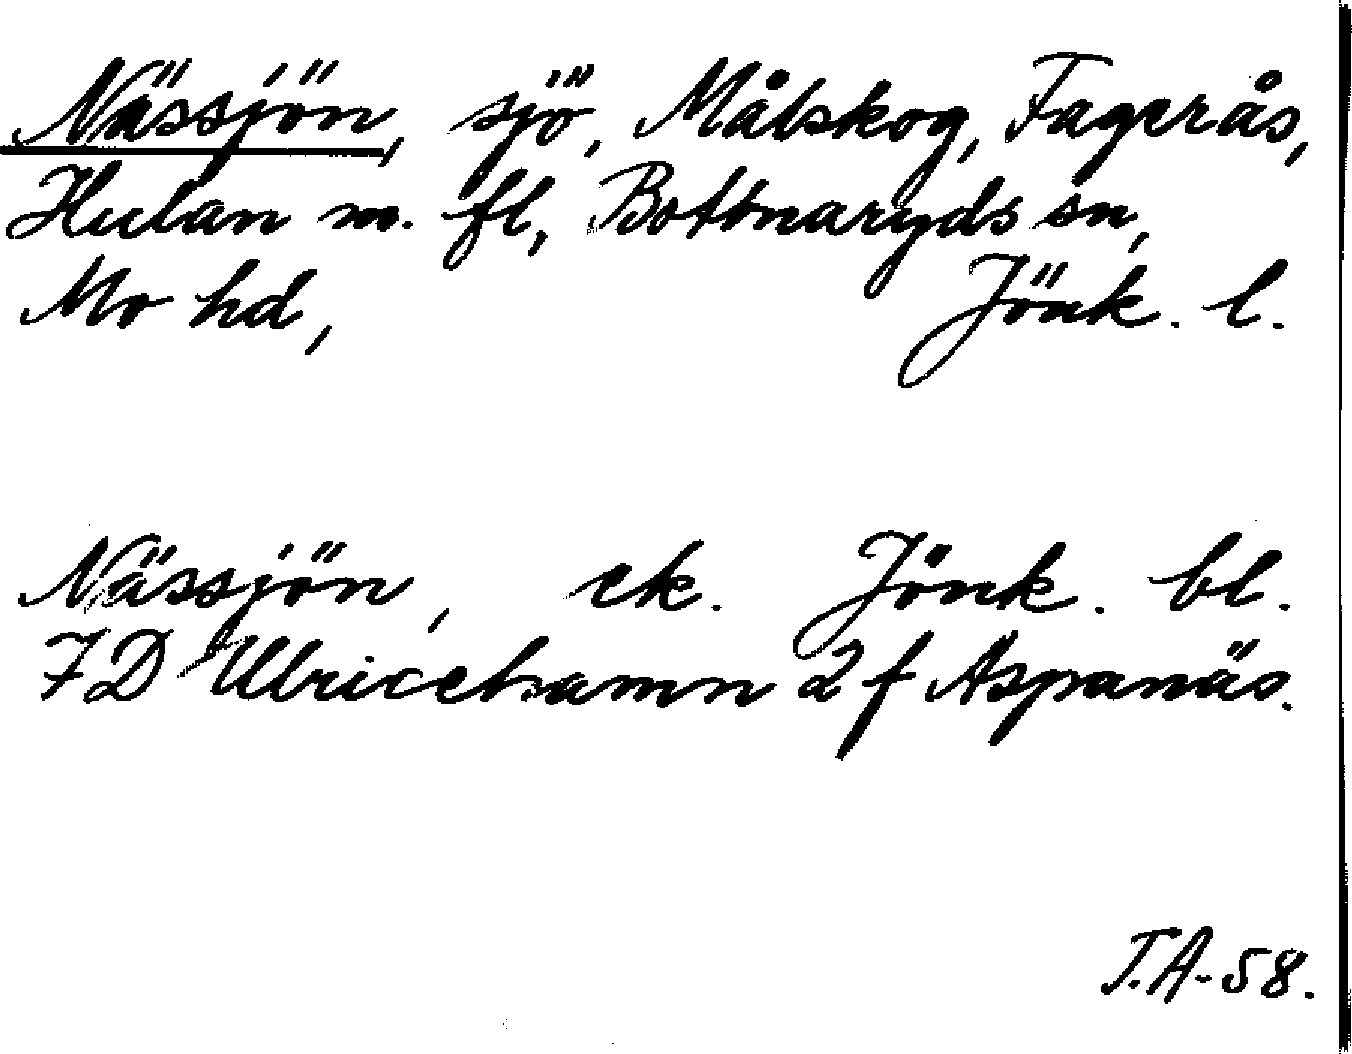 Nässjön, sjö, Målskog, Fagerås,
Hulan m. fl, Bottnaryds sn,
Mo hd, Jönk. l.
Nässjön, ek. Jönk. bl.
7D Ulricehamn 2f Aspanäs.
T.A-58.